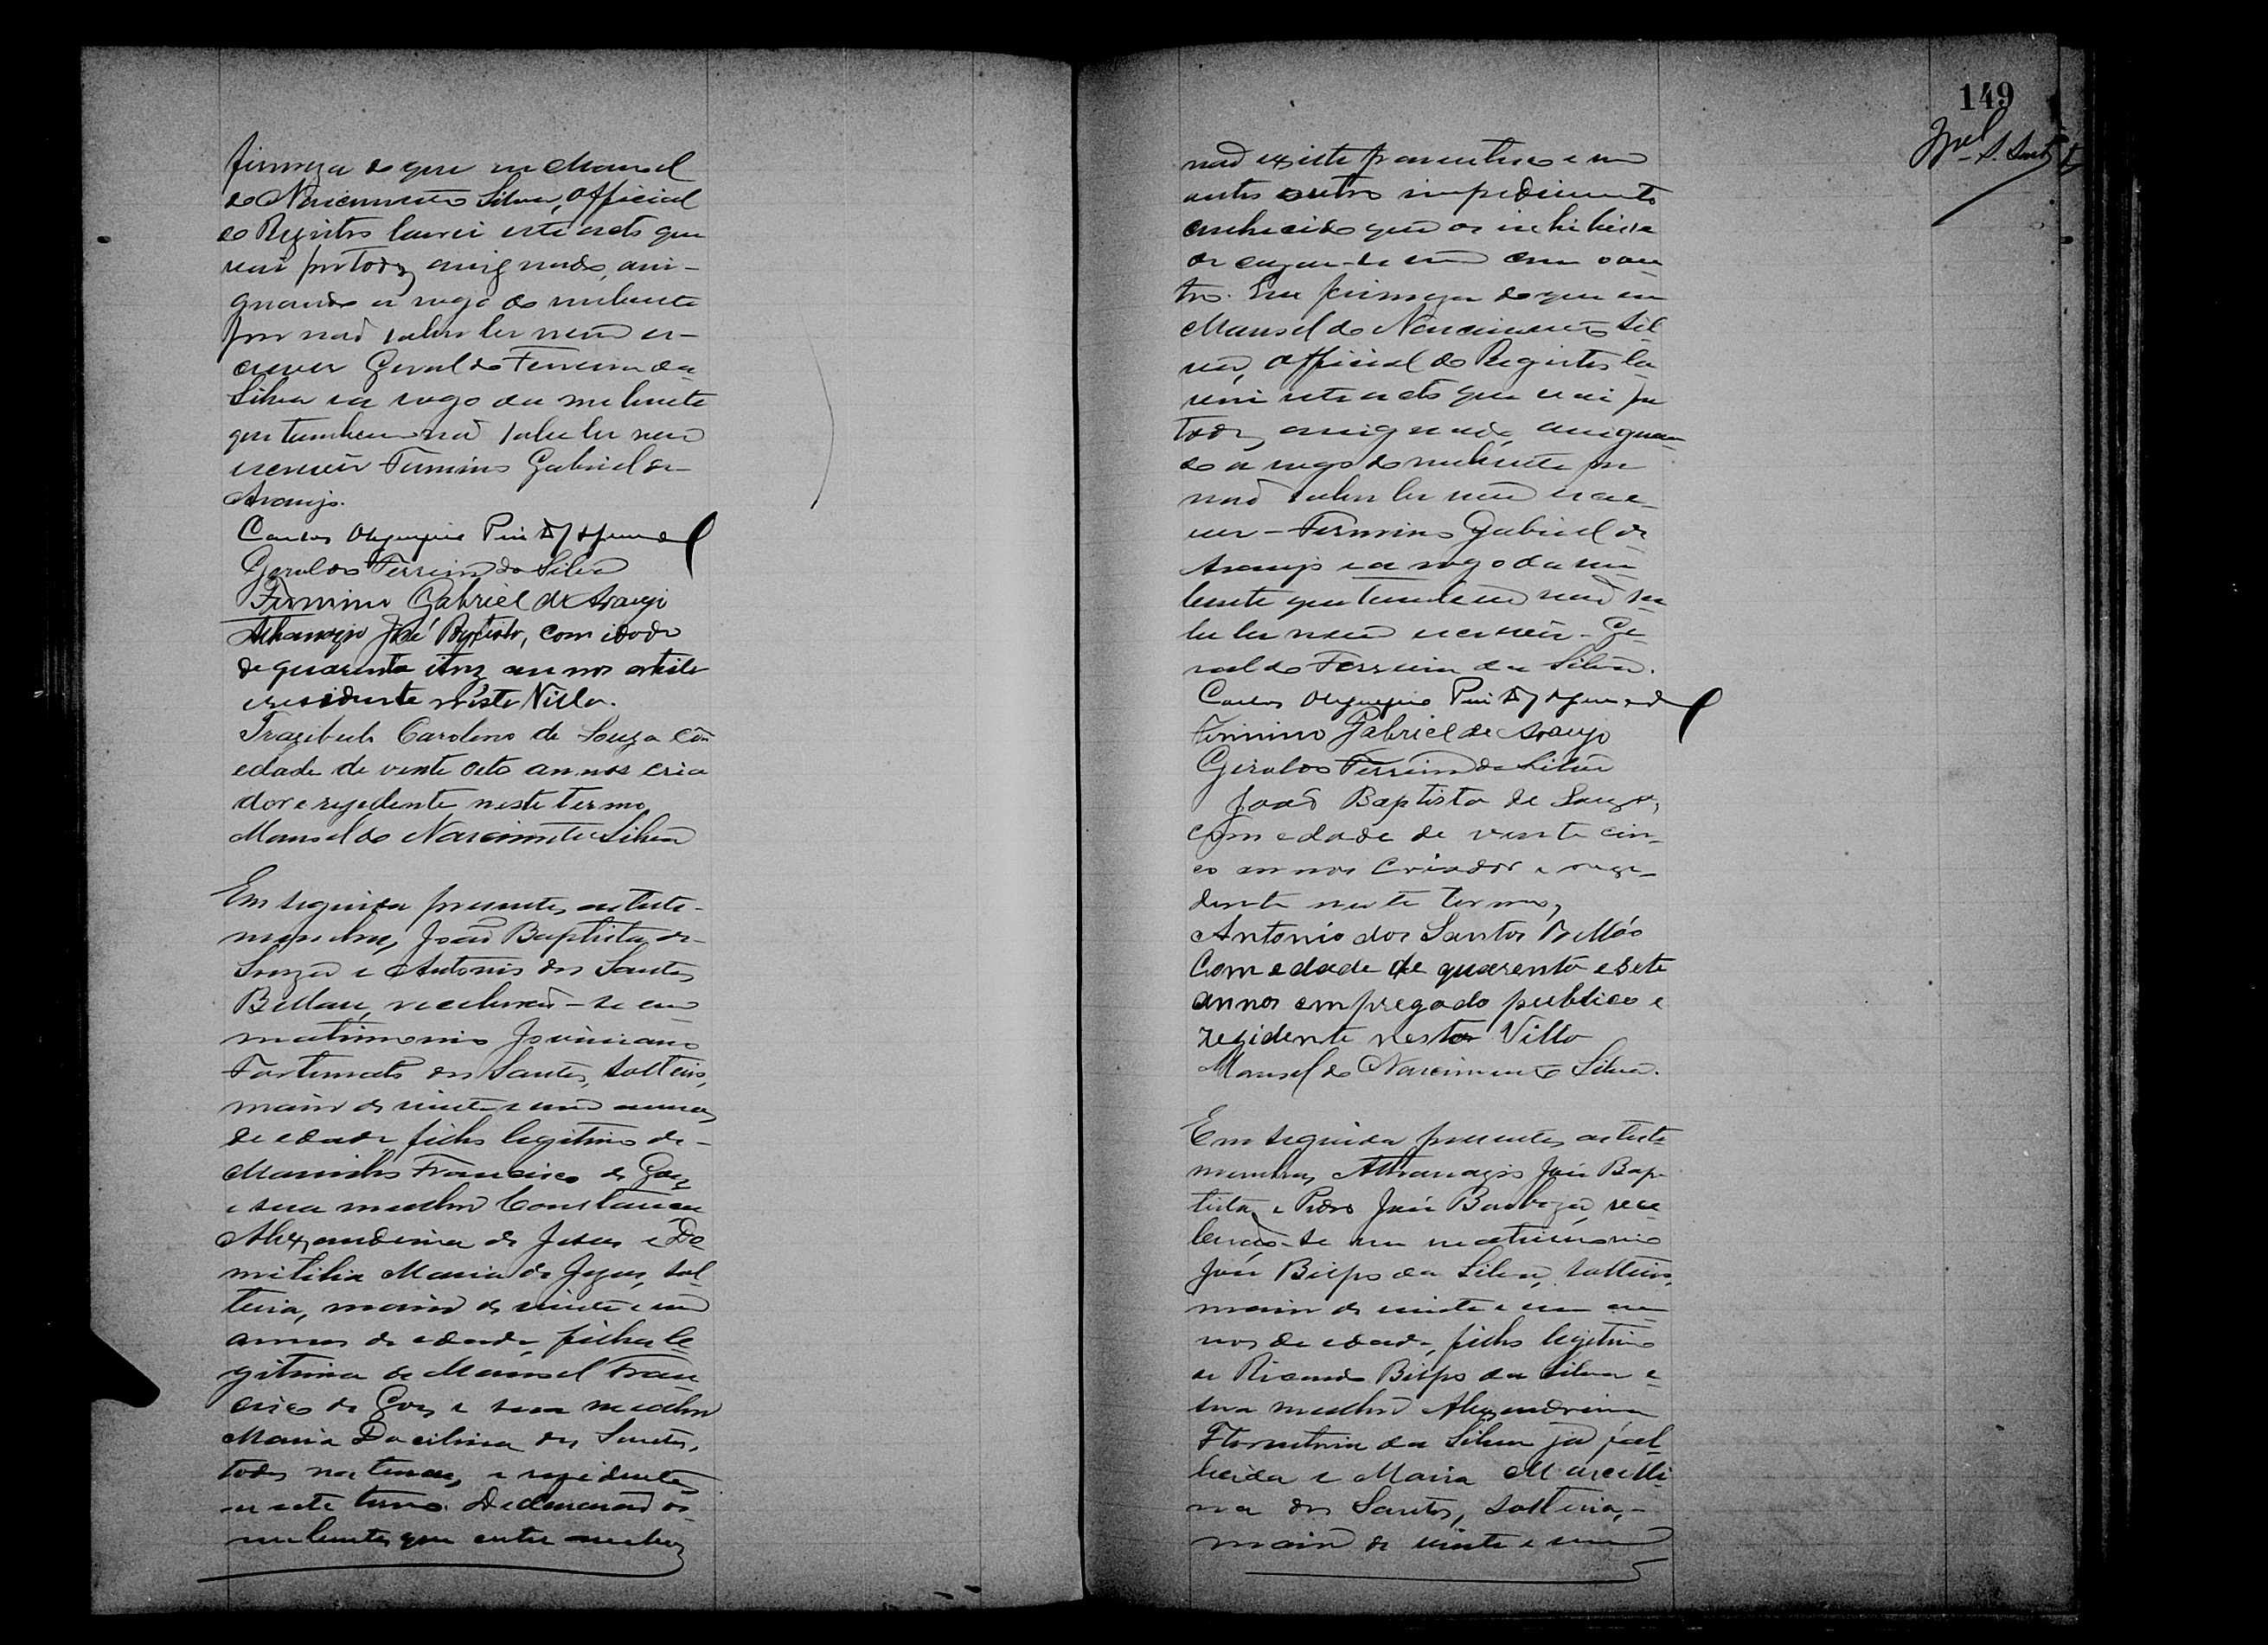 firmeza do que eu Manoel
do Nascimento Silva, Official
do Registro lavrei este acto que
vai por todos assignado, assi-
gnando a rogo do nubente
por naõ saber ler nem es-
crever Geraldo Ferreira da
Silva e a rogo da nubente
que tambem naõ sabe ler nem
escrever Firmino Gabriel de
Araujo.
Carlos Olympio
Geraldo Ferreira da Silva
Firmino Gabriel de Araujo
Athanazio José Baptista, com idade
de quarenta e tres annos artista
e residente nesta Villa.
Trazibulo Carolino de Souza cõ
edade de vente oito annos cria
dor e resedente neste termo
Manoel do Nascimento Silva
Em seguida presentes as teste-
munhas, João Baptista de
Souza e Antonio dos Santos
Bellaõ, receberaõ-se em
matrimonio Joviniano
Fortunato dos Santos, solteiro,
maior de vinte e um annos
de edade filho legitimo de
Marinho Francisco de Goes
e sua mulher Constancia
Alexandrina de Jesus e Do
mitilia Maria de Jezus, sol
teira, maior de vinte e um
annos de edade, filha le
gitima de Manoel Fran
cisco de Goes e sua mulher
Maria Dacilina dos Santos,
todos naturaes, e rezidentes
neste termo. Declararaõ os
nubentes que entre ambos
149
naõ existe parentesco e nem
outro impedimento
conhecido que os inhibisse
de cazar-se um com o ou
tro. Em firmeza do que eu
Manoel do Nascimento Sil
va, Official do Registro la
vrei este acto que vai por
todos assignado, assignan
do a rogo do nubente por
naõ saber ler nem escre
ver - Firmino Gabriel de
Araujo e a rogo da nu
bente que tambem naõ sa
be ler nem escrever - Ge
raldo Ferreira da Silva.
Carlos Olympio
Firmino Gabriel de Araujo
Geraldo Ferreira da Silva
João Baptista de Souza,
com edade de vente cin-
co annos Criador e reze-
dente neste termo,
Antonio dos Santos Bellão
Com edade de quarenta e sete
annos empregado publico e
rezidente nesta Villa
Manoel do Nascimento Silva.
Em seguida presentes as teste
munhas, Athanazio José Bap-
tista e Pedro José Barboza, rece
beraõ-se em matrimonio
José Bispo da Silva, solteiro,
maior de vinte e um an
nos de edade, filho legitimo
de Ricardo Bispo da Silva e
sua mulher Alexandrina
Florentina da Silva já fal
lecida e Maria Marcelli
na dos Santos, solteira,
maior de vinte e um